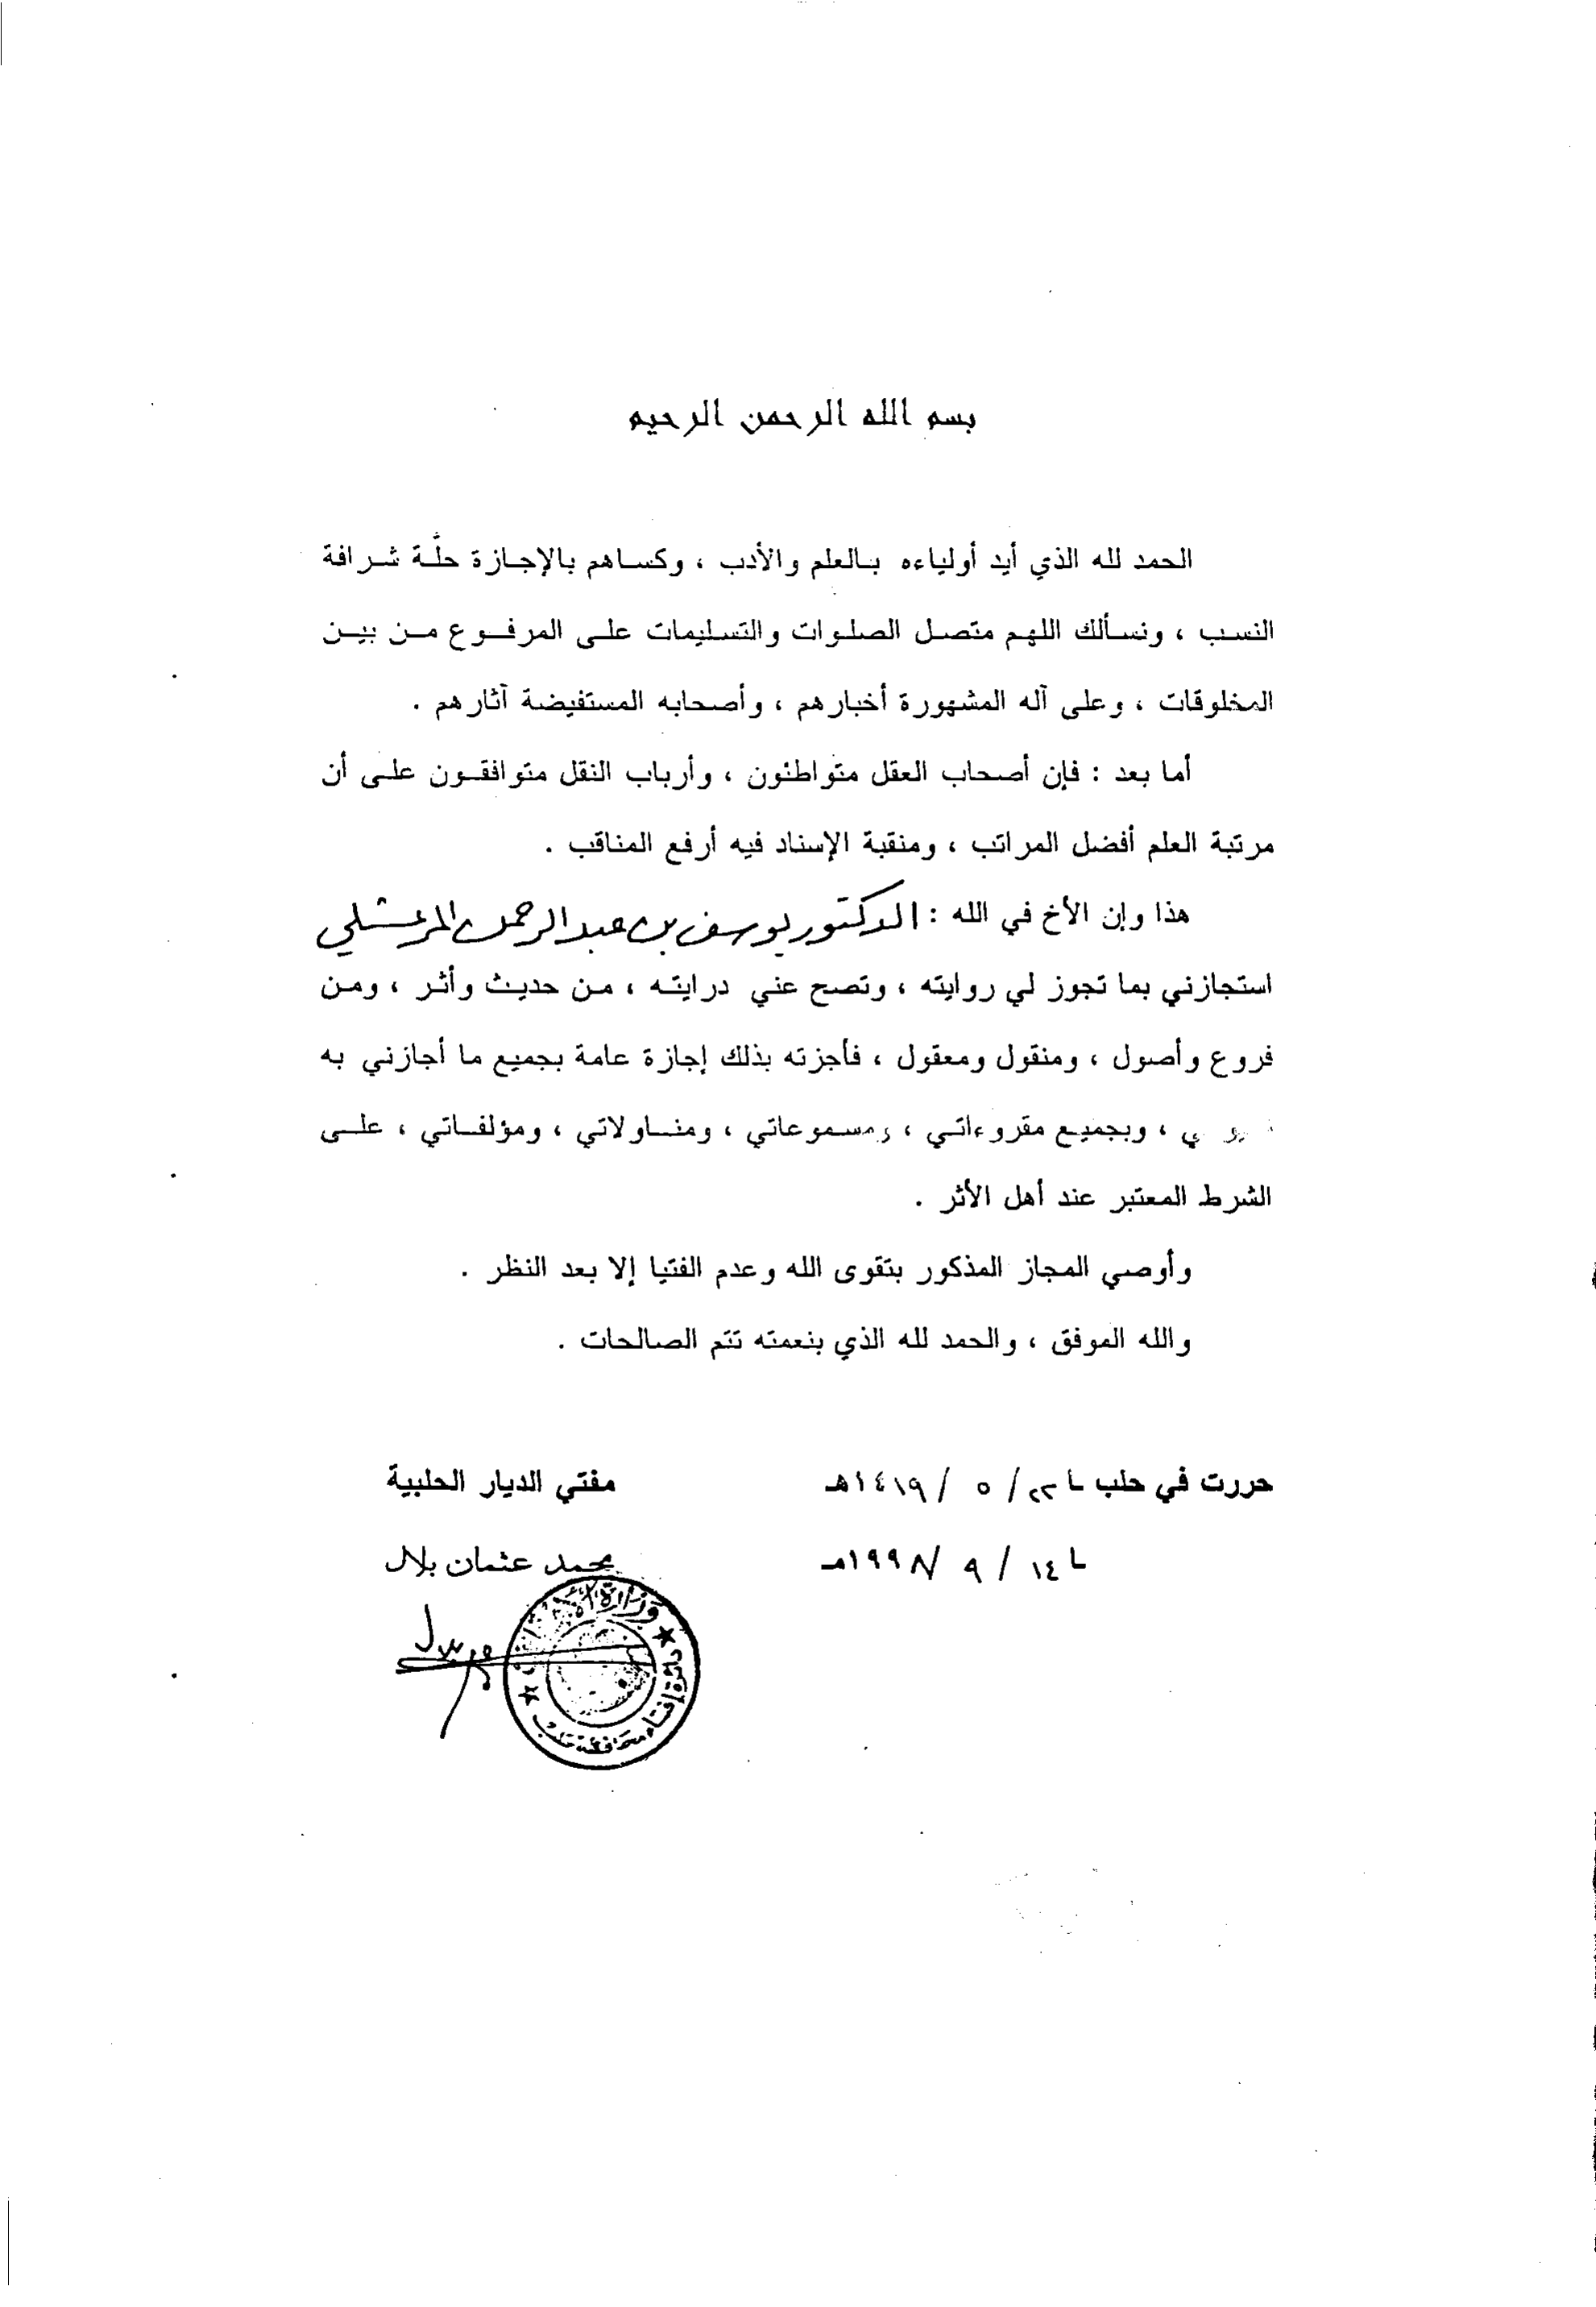 بسم الله الرحمن الرحيم
الحمد لله الذي أيد أولياءه بالعلم والأدب ، وكساهم بالإجازة حلّة شرافة
النسب ، ونسألك اللهم متصل الصلوات والتسليمات على المرفوع من بين
المخلوقات ، وعلى آله المشهورة أخبارهم ، وأصحابه المستفيضة آثارهم .
أما بعد : فإن أصحاب العقل متواطئون ، وأرباب النقل متوافقون على أن
مرتبة العلم أفضل المراتب ، ومنقبة الإسناد فيه أرفع المناقب .
هذا وإن الأخ في الله : الدكتور يوسف بن عبد الرحمن المرعشلي
استجازني بما تجوز لي روايته ، وتصح عني درايته ، من حديث وأثر ، ومن
فروع وأصول ، ومنقول ومعقول ، فأجزته بذلك إجازة عامة بجميع ما أجازني به
، وبجميع مقروءاتي ، ومسموعاتي ، ومناولاتي ، ومؤلفاتي ، على
الشرط المعتبر عند أهل الأثر .
وأوصي المجاز المذكور بتقوى الله وعدم الفتيا إلا بعد النظر .
والله الموفق ، والحمد لله الذي بنعمته تتم الصالحات .
حررت في حلب ٢٢ / ٥ / ١٤١٩هـ
مفتي الديار الحلبية
١٤ / ٩ / ١٩٩٨مـ
محمد عثمان بلال
وزارة الأوقاف
دائرة إفتاء محافظة حلب